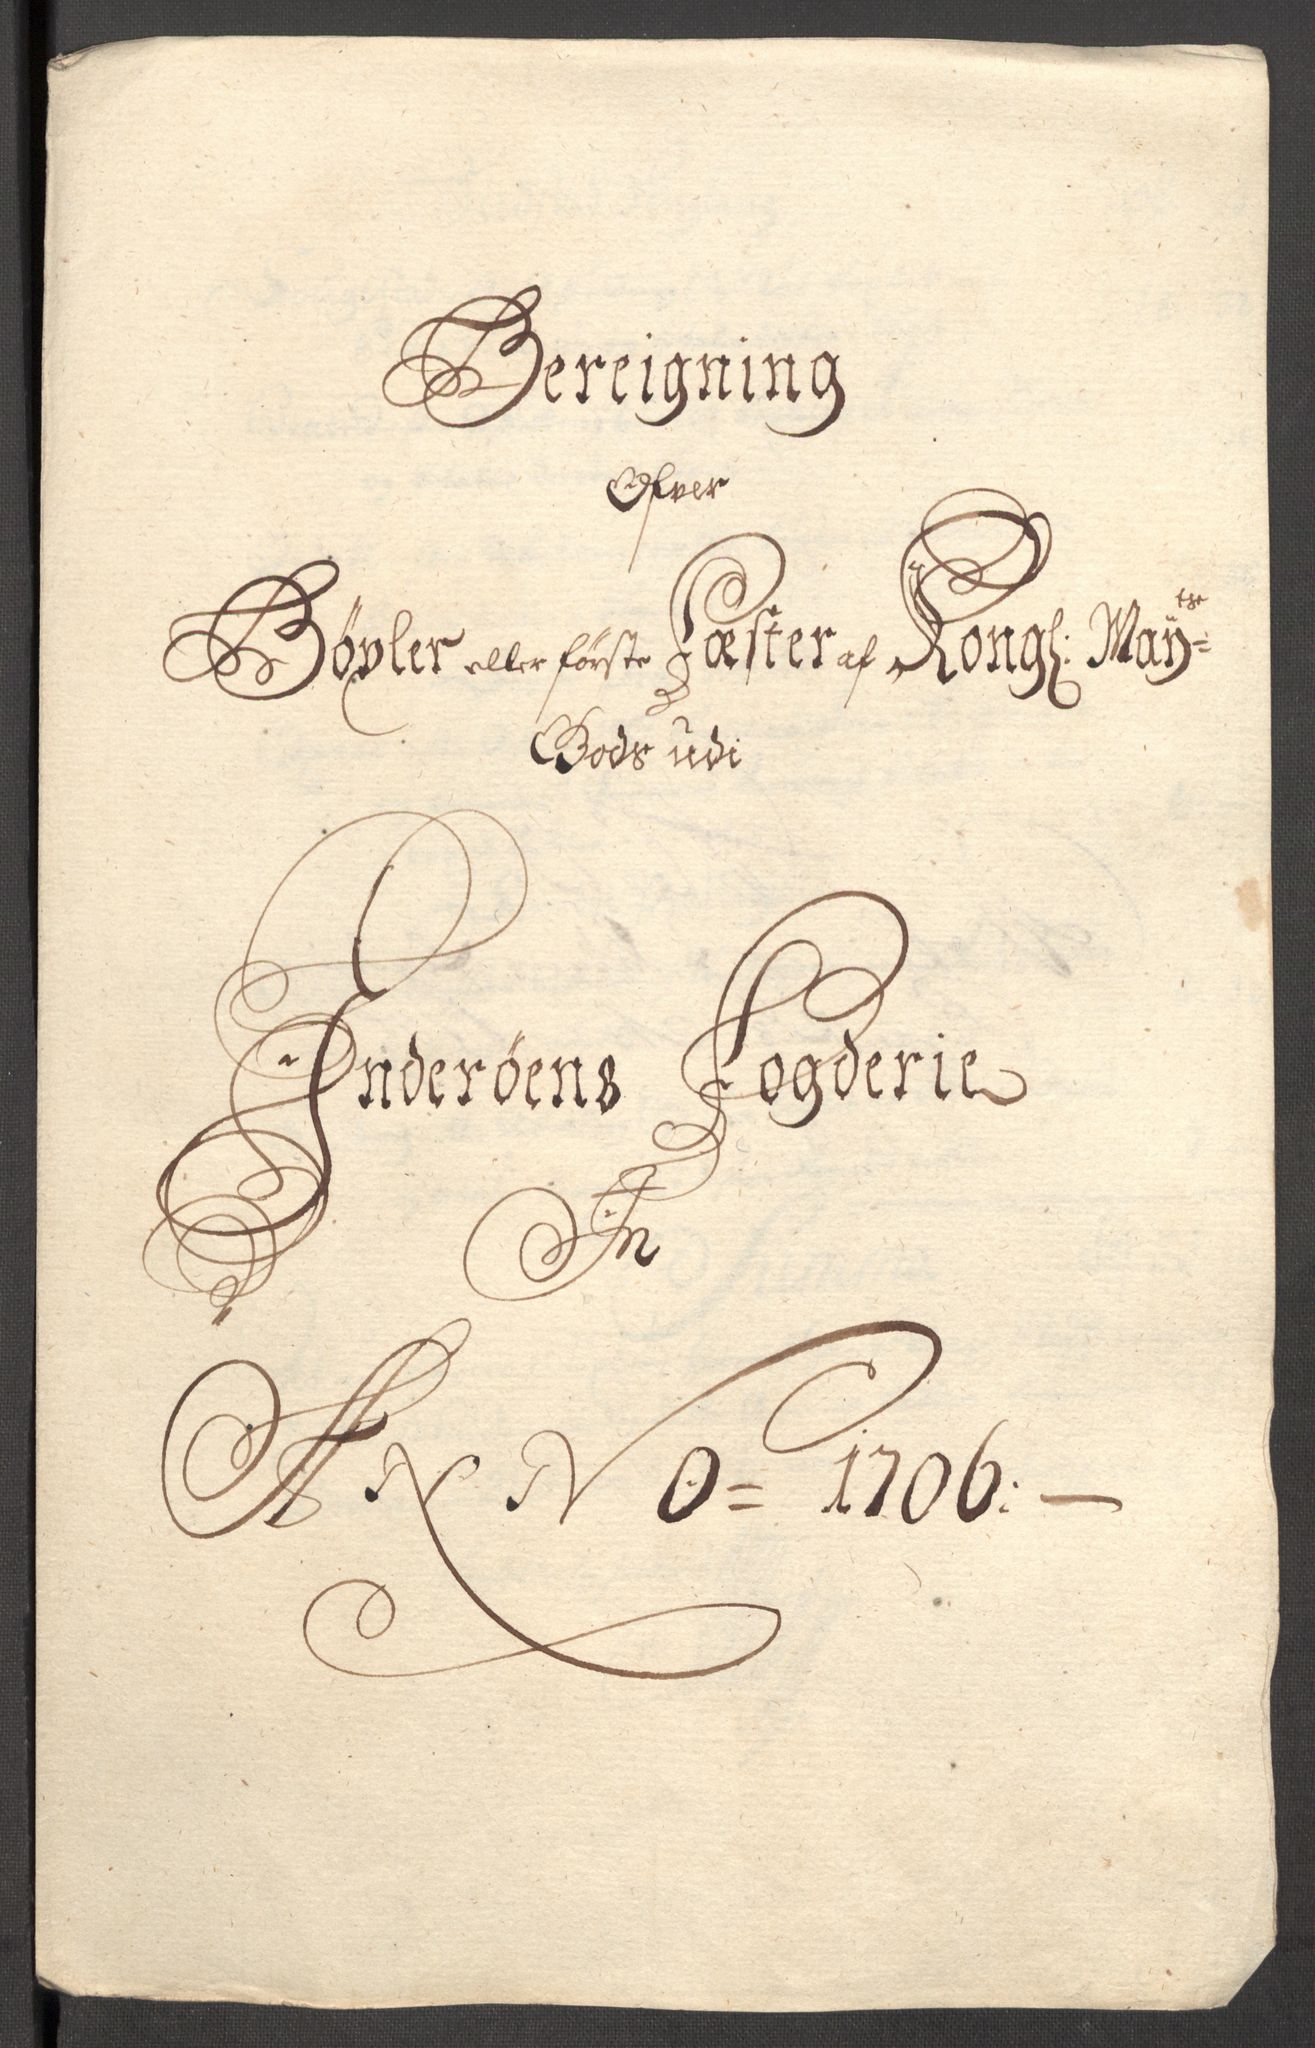 Bereigning
Ofver
Böxler eller förste Fæster af Kongl: Maÿ=tts
Gods udi
Inderöens Fogderie
In
ANNO= 1706: —